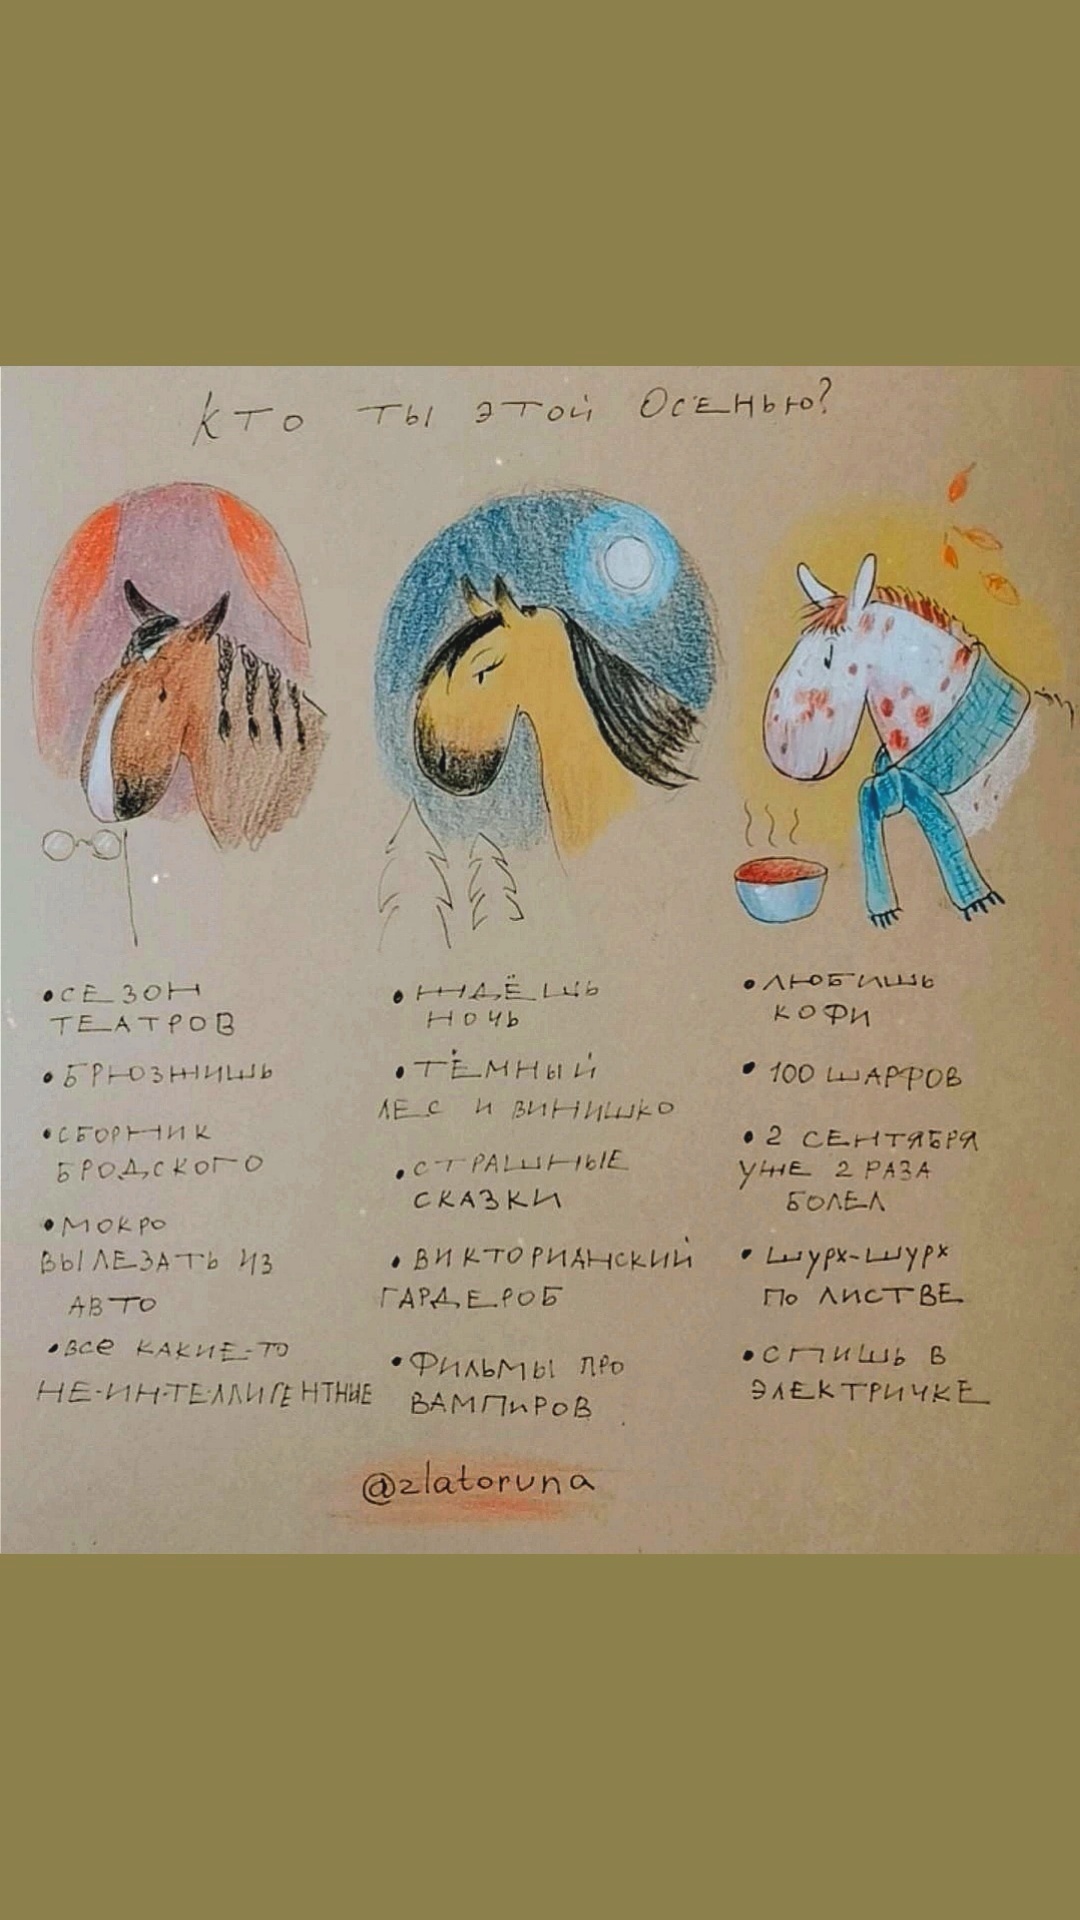 Кто ты этой Осенью?
•СЕЗОН
ТЕАТРОВ
•БРЮЗЖИШЬ
•СБОРНИК
БРОДСКОГО
•МОКРО
ВЫЛЕЗАТЬ ИЗ
АВТО
•все КАКИЕ-ТО
НЕ-ИН-ТЕЛЛИГЕНТНЫЕ
•ЖДЁШЬ
НОЧЬ
•ТЁМНЫЙ
ЛЕС И ВИНИШКО
•СТРАШНЫЕ
СКАЗКИ
•ВИКТОРИАНСКИЙ
ГАРДЕРОБ
•ФИЛЬМЫ ПРО
ВАМПИРОВ
•ЛЮБИШЬ
КОФИ
•100 ШАРФОВ
•2 СЕНТЯБРЯ
УЖЕ 2 РАЗА
БОЛЕЛ
•ШУРХ-ШУРХ
ПО ЛИСТВЕ
•СПИШЬ В
ЭЛЕКТРИЧКЕ
@zlatoruna